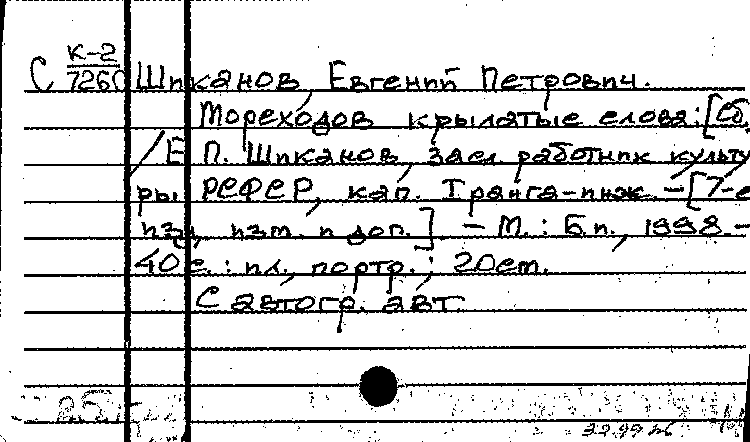 С К-2
7260 Шиканов, Евгений Петрович.
Мореходов крылатые слова: [Сб.
/ Е. П. Шиканов, засл работник культу
ры РСФСР, кап. I ранга-инж. - [7-е
изд, изм. и доп.] - М.: Б.и., 1998. -
40 с.: ил., портр.; 20 см.
С автогр. авт.